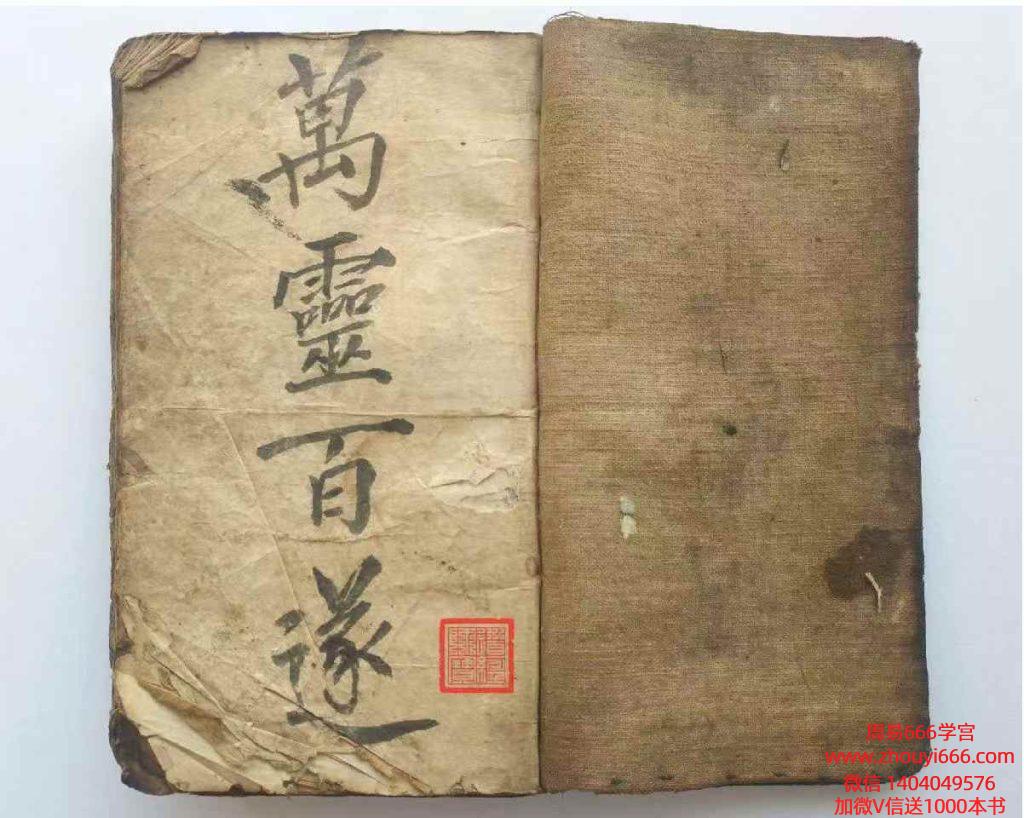 萬靈百遂
周易666学宫
www.zhouyi666.com
微信1404049576
加微V信送1000本书